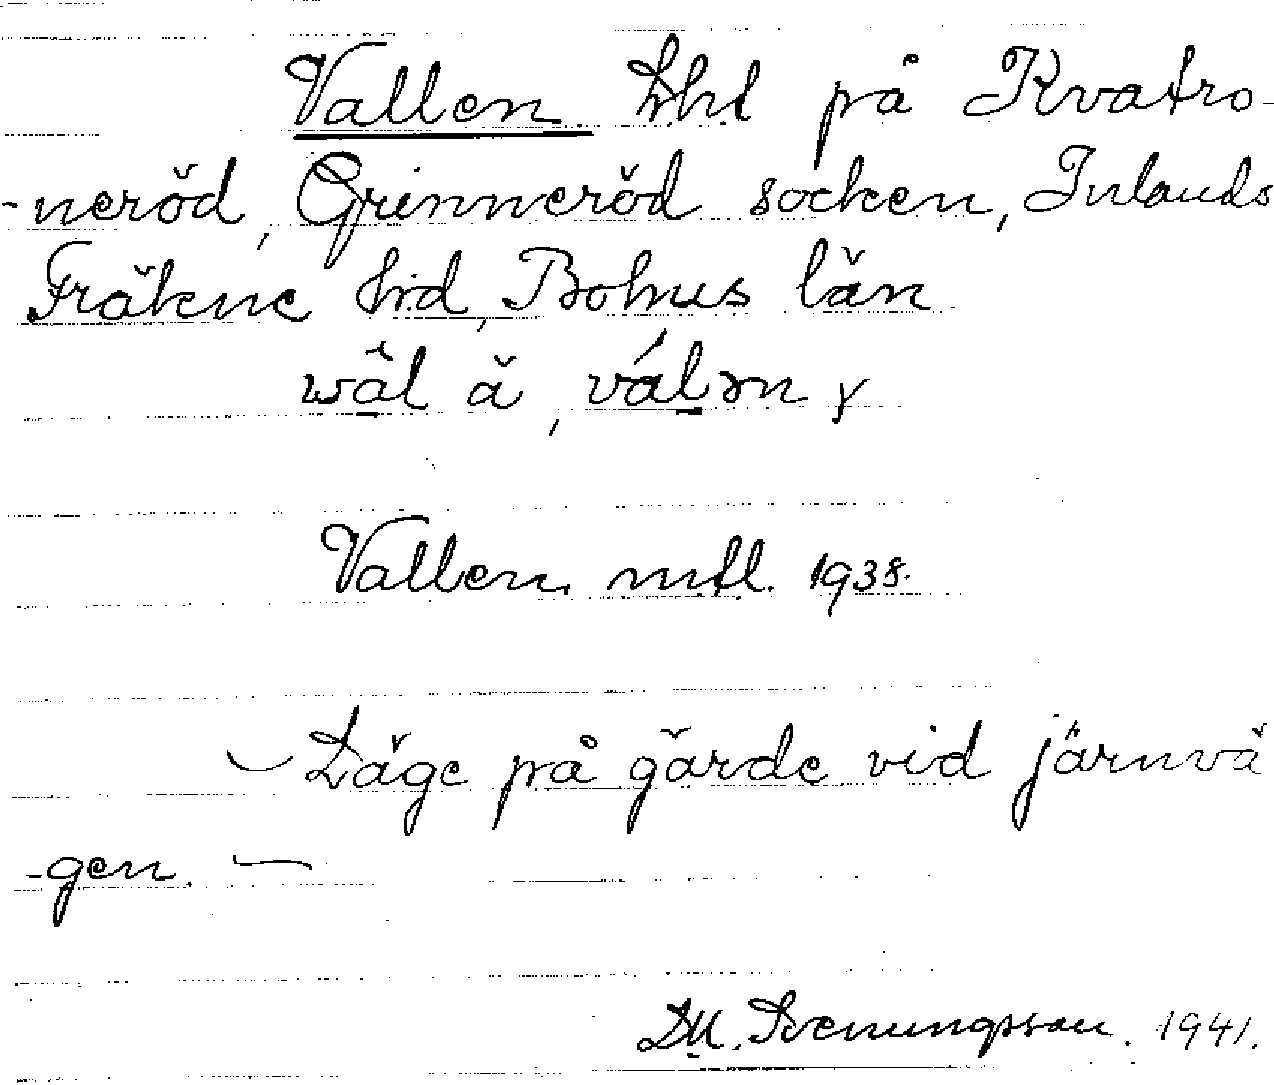 Vallen lht på Kvatro-
-neröd, Grinneröd socken, Inlands
Fräkne hrd, Bohus län
vál ə n
Vallen. mtl. 1938.
— Läge på gärde vid järnvä
-gen. —
D.M. Svenungsson. 1941.